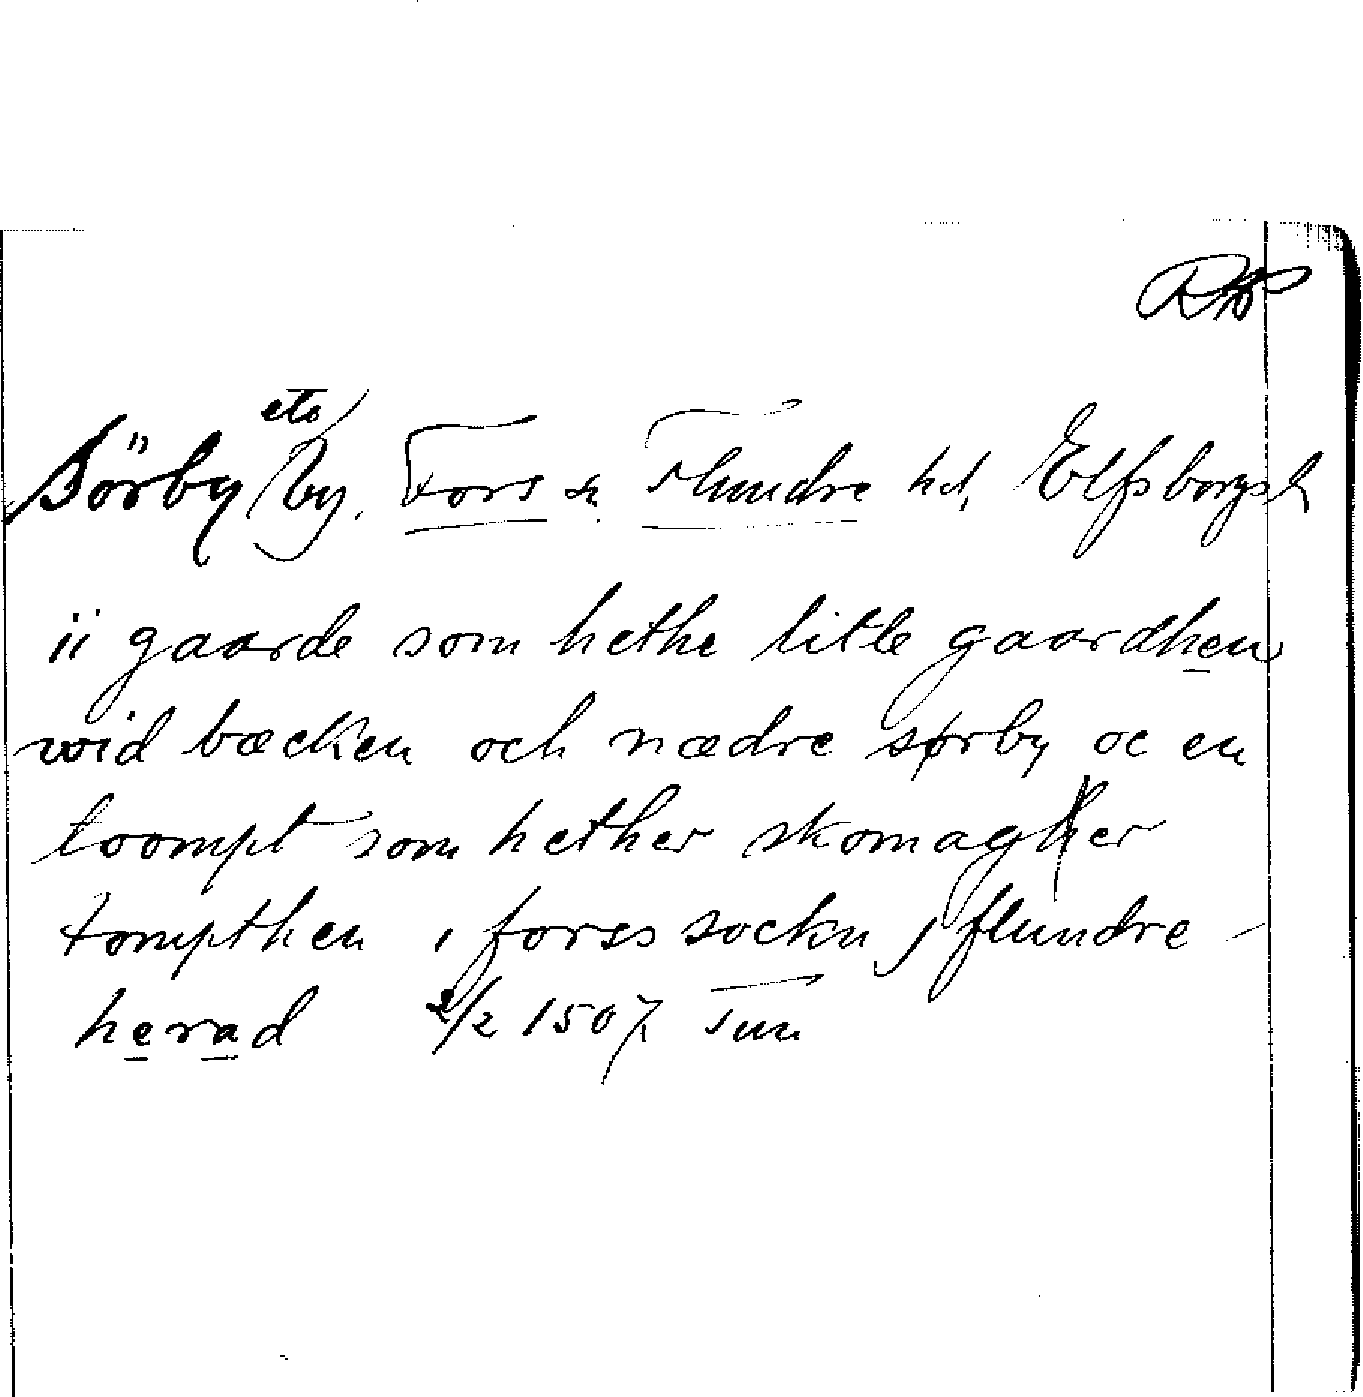 Sörby etc by. Fors sn Flundre hd, Elfsborgs l
ii gaarde som hethe litle gaardhen
wid bæcken och nædre sørby oc en
toompt som hether skomagher
tompthen i forss sockn j flundre
herad 2/2 1507